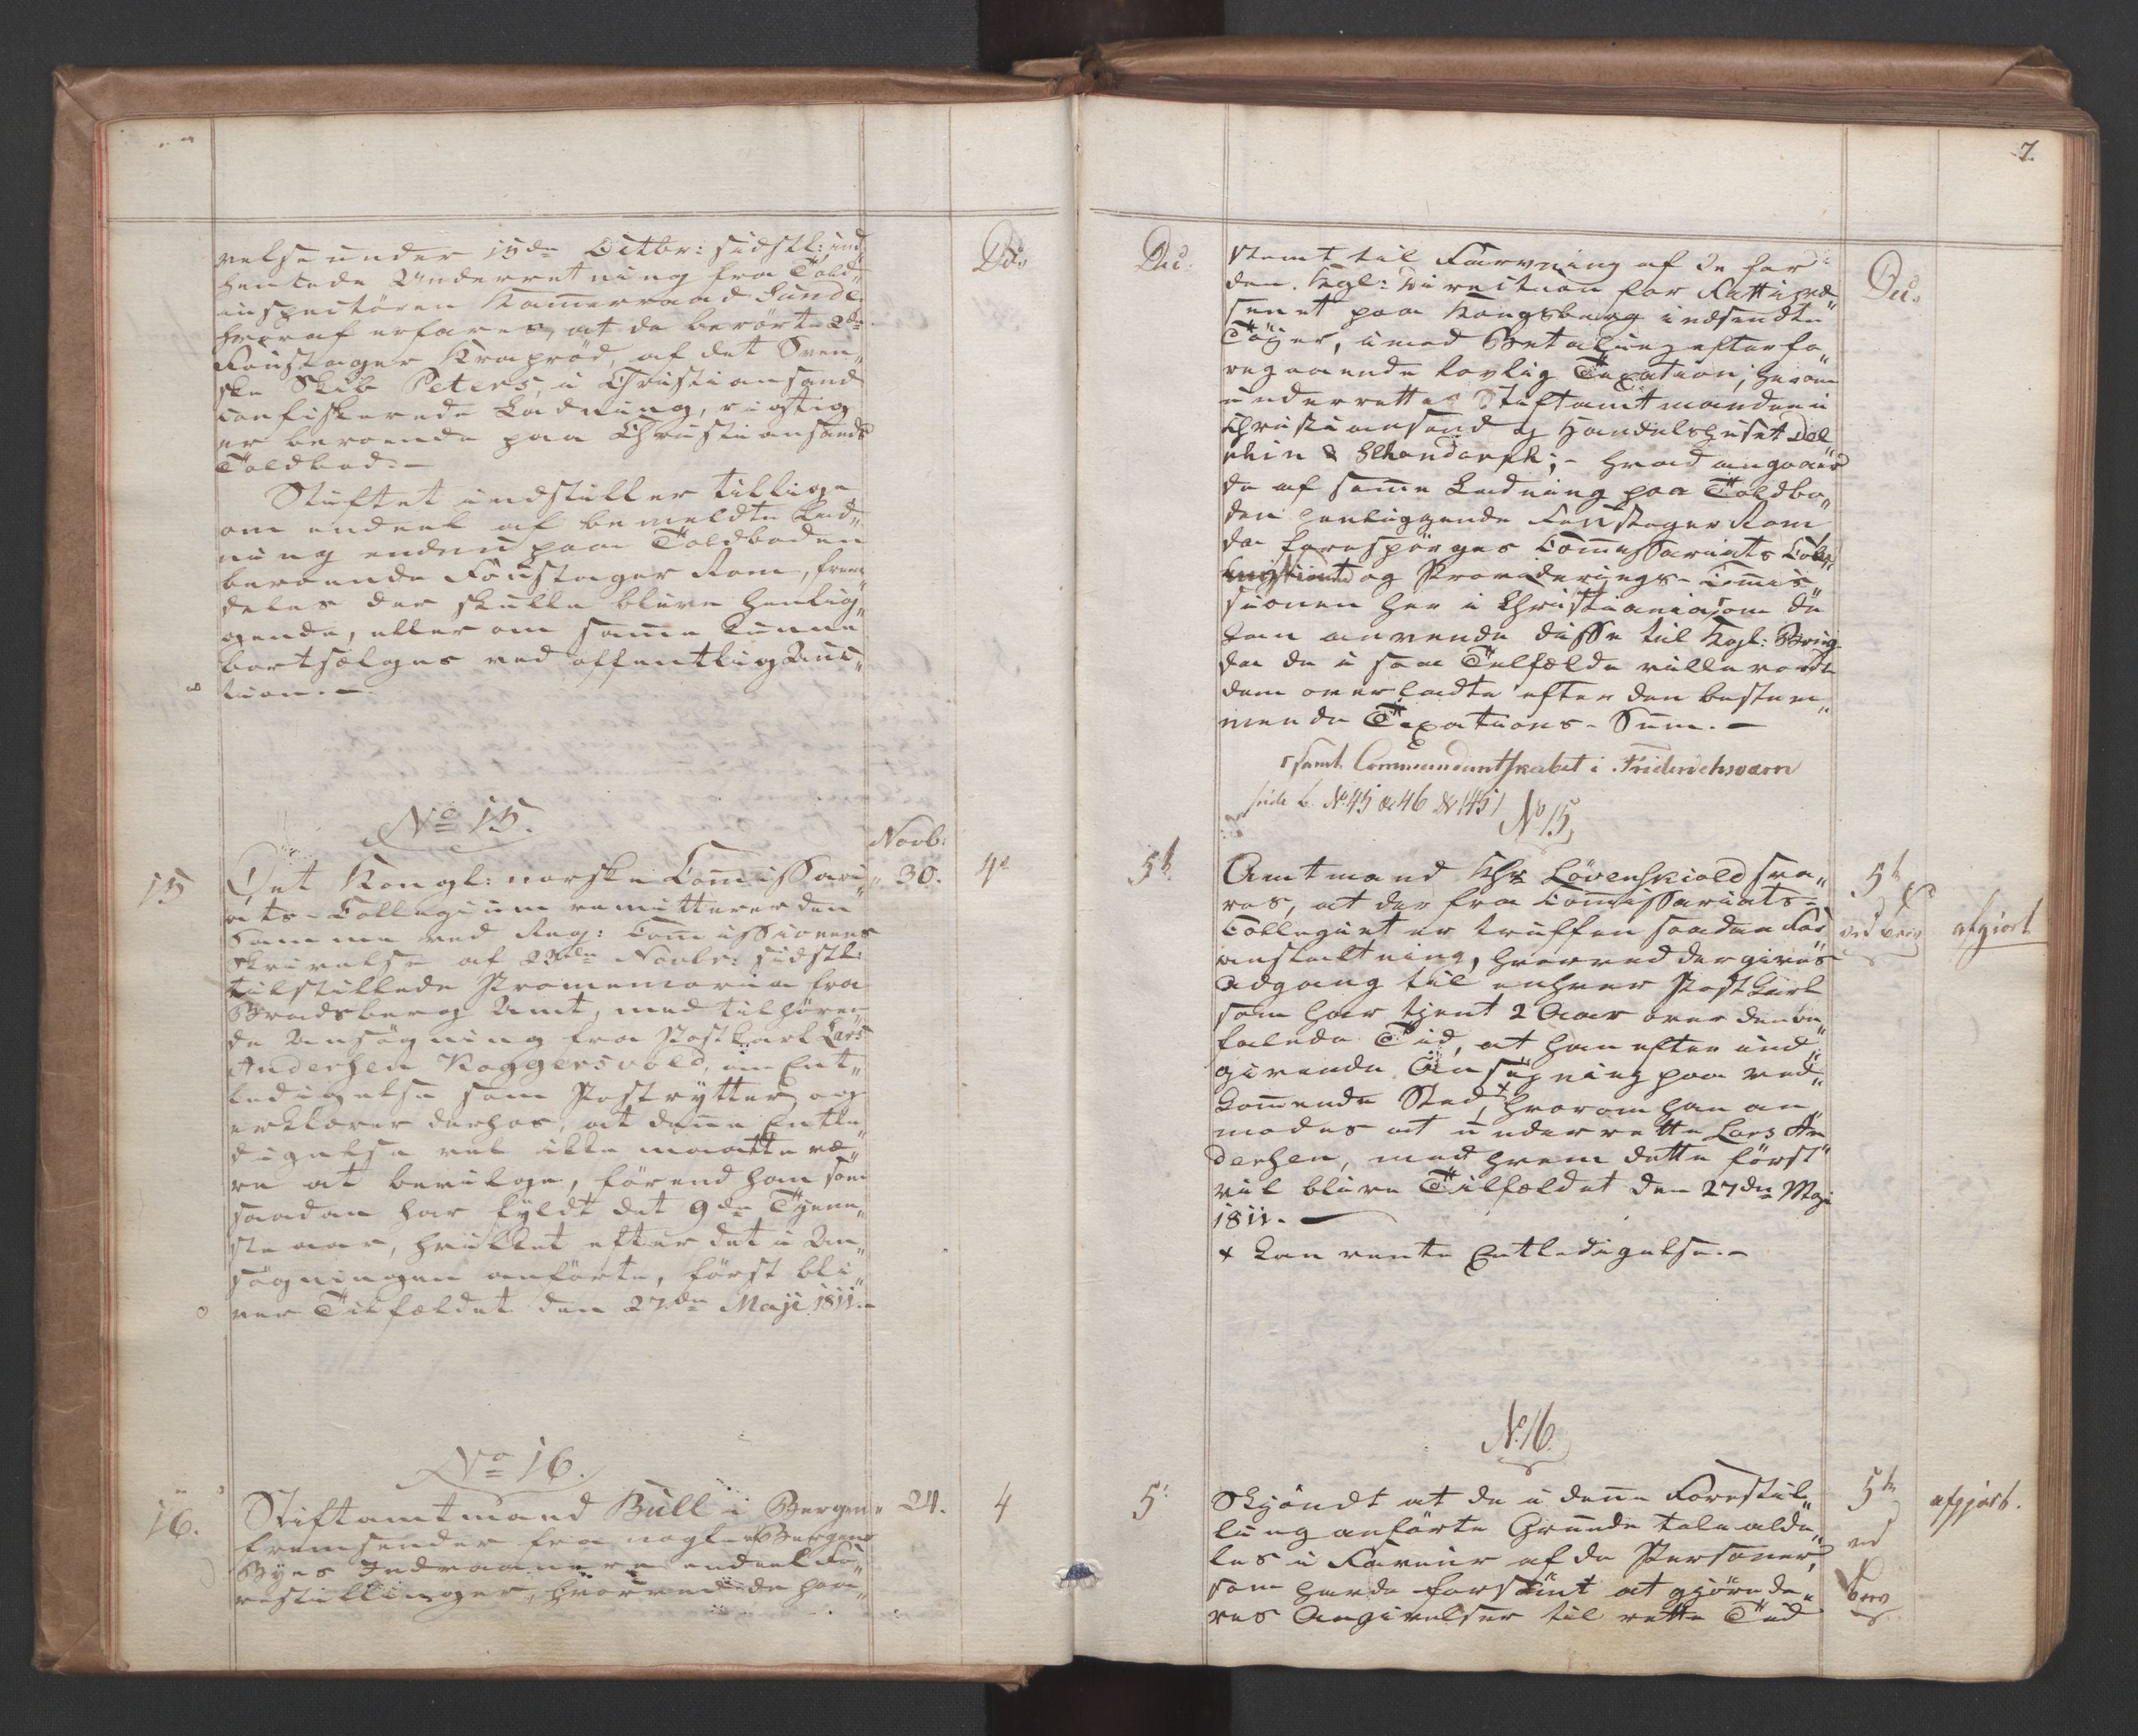 velse under 15de Octbr: sidstl: ind„
hentede Underretning fra Told„
inspectören Kammerraad Lund
hvoraf erfares, at de berörte 2de
Foustager Kraprød, af det Sven„
ske Skib Peters, i Christiansand
confiskerede Ladning, rigtig
er beroende paa Christiansands
Toldbod.-
Stiftet indstiller tillige
om endeel af bemeldte Lad„
ning endnu paa Toldboden
beroende Foustager Rom, frem„
deles der skulle blive henlig„
gende, eller om samme kunne
bortsælges ved offentlig Auc„
tion.-
No 15.
Novb:
15
Det Kongl: norske Commissari„
30.
4de
ats-Collegium remitterer den
samme ved Reg: Commissionens
Skrivelse af Novbr: sidstl:
tilstillede Promemoria fra
Bradsberg Amt, med tilhören„
de Ansögning fra Postkarl Lars
Andersen Roggersvold, om Ent„
ledigelse som Postrytter, og
erklærer derhos, at denne Entle„
digelse vel ikke maatte væ„
re at bevilge, förend han som
saadan har fyldt det 9de Tjene„
ste aar, hvilket efter det i An„
sögningen anförte, först bli„
ver Tilfældet den 27de Maji 1811.-
No 16.
16.
Stiftamtmand Bull i Bergen
24.
4
fremsender fra nogle Bergens
Byes Indvaanere endeel Fo„
restillinger, hvorved de paa„
Do.
7.
Do.
stemt til Farvning af de for
den Kgl: Direction for Fattigvæ„
senet paa Kongsberg indsendte
Töyer, imod Betaling efter fo„
regaaende lovlig Taxation, herom
underrettes Stiftamtmanden i
Christiansand og Handelshuset
& ;- hvad angaaer
de af samme Ladning paa Toldbo„
den henliggende Foustager Rom
da forespörges Commissariats Colle„
og Providerings-Commis„
sionen her i Christiania om de
kan anvende disse til Kgl: Brug
da de i saa Tilfælde ville vorde
dem overladte efter den bestem„
mende Taxations-Sum.-
samt Commandantskabet i Friderichsværn
No 15
Do.
5te
Amtmand Hr Lövenskiold sva„
res, at der fra Commissariats-
Collegiet er truffen saadan For„
anstaltning, hvorved der gives
Adgang til enhver Postkarl
som har tjent 2 Aar over den be„
falede Tid, at han efter ind„
givende Ansögning paa ved„
kommende Sted,+ hvorom han an„
modes at underrette Lars An„
dersen, med hvem dette först
vil blive Tilfældet den 27de Maji
1811.-
+ kan vente Entledigelse.-
5te
ved brev
afgiort
No. 16.
5
Skjöndt at de i denne Forestil„
ling anförte Grunde tale alde„
les i Faveur af de Personer,
som havde forsömt at gjöre de„
res Angivelser til rette Tid
5te
ved
brev
afgjort.